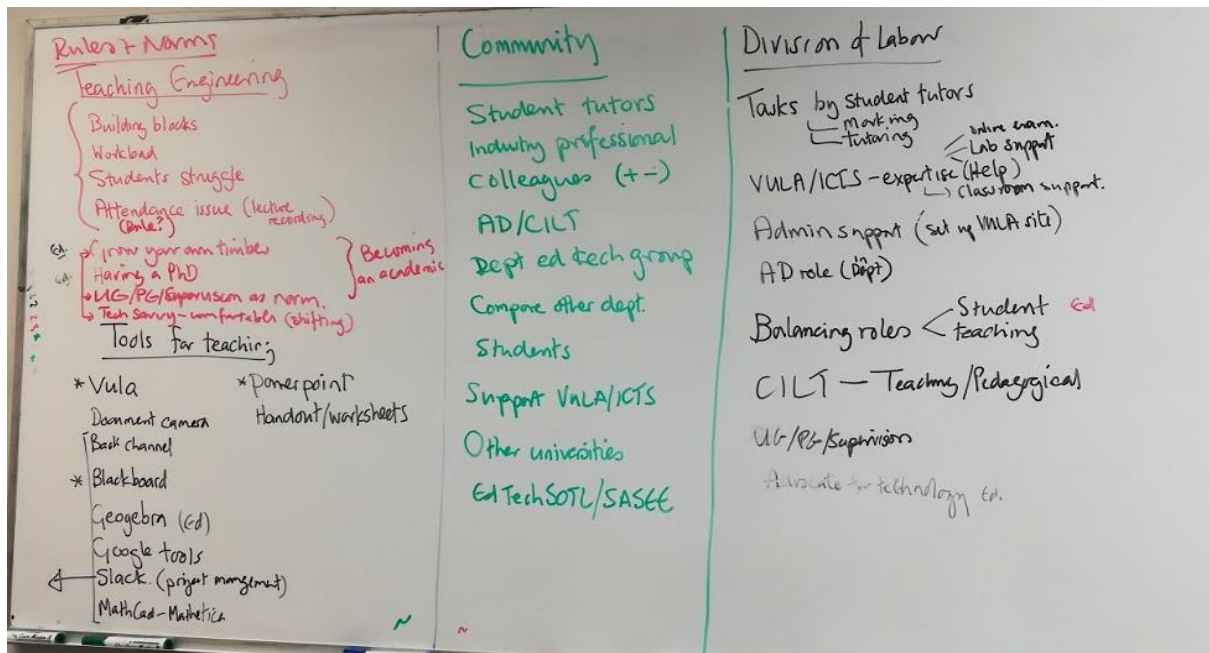 Rules + Norms
Teaching Engineering
Building blocks
Workload
Students struggle
Attendance issue (lecture recording)
(Role?)
Ed. Grow your own timber
Ed. Having a PhD
UG/PG/Supervision as norm.
Tech Savvy - comfortable (shifting)
Becoming an academic
Tools for teaching
* Vula
* Powerpoint
Document camera
Handout/worksheets
Back channel
* Blackboard
Geogebra (Ed)
Google tools
Slack. (project mangement)
MathCad - Mathetica
Community
Student tutors
Industry professional
Colleagues (+-)
AD/CILT
Dept ed tech group
Compare other dept.
Students
Support VULA/ICTS
Other universities
EdTechSOTL/SASEE
Division of Labour
Tasks by student tutors
marking
tutoring
online exam.
Lab support
VULA/ICTS - expertise (Help)
classroom support.
Admin support (set up VULA site)
AD role (in Dept)
Balancing roles < Student Ed
teaching
CILT - Teaching/Pedagogical
UG/PG/Supervisors
Advocate for technology Ed.